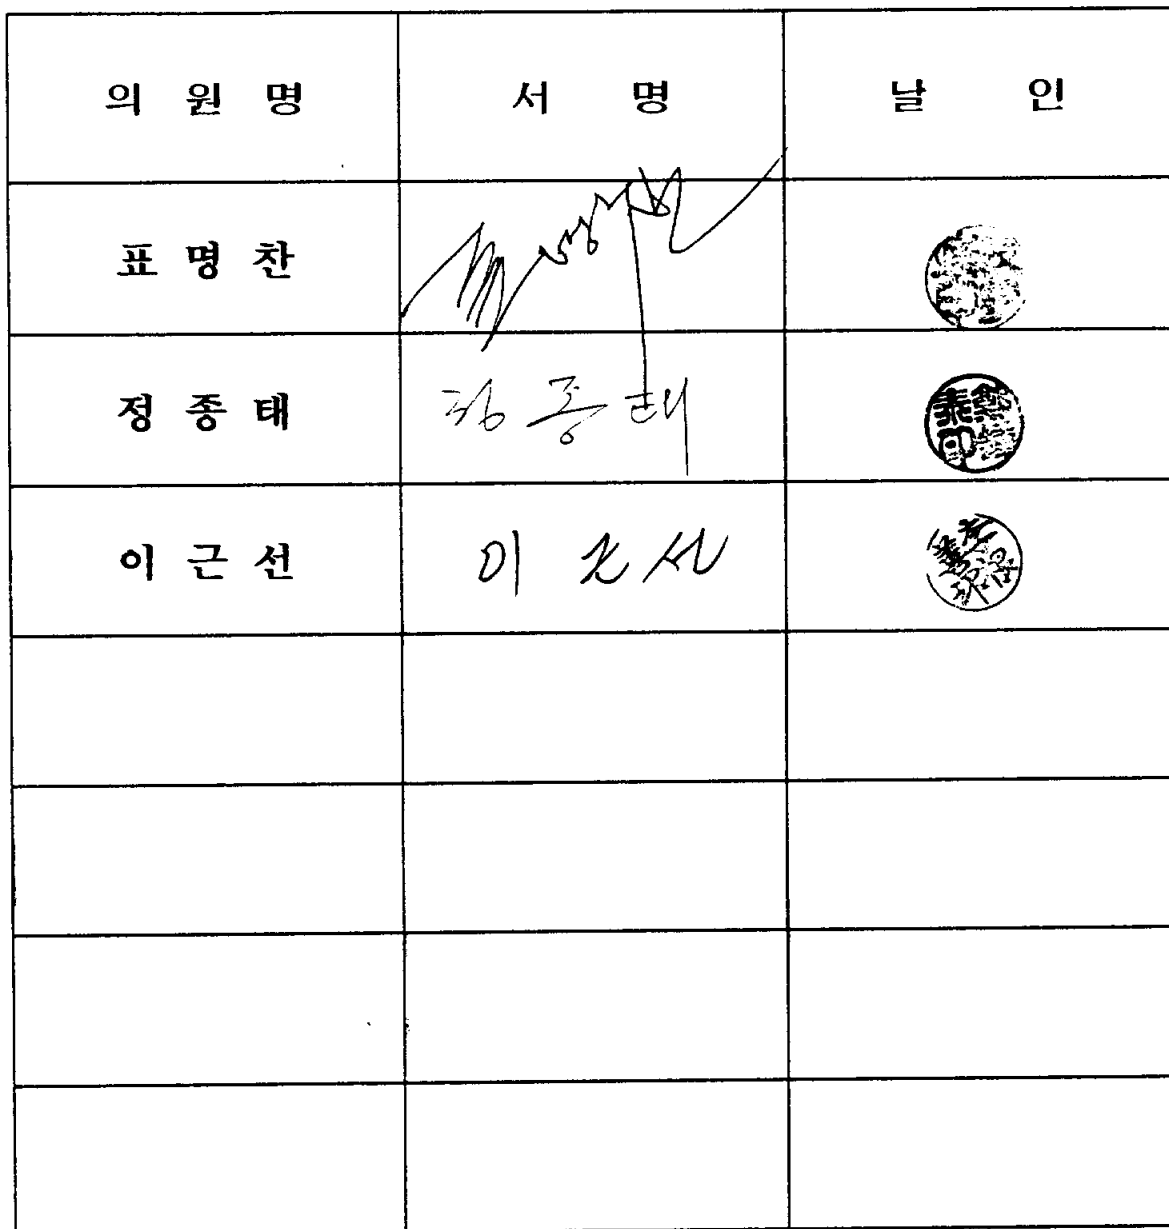 의 원 명 서 명 날 인
표 명 찬
정 종 태 정 종 태
이 근 선 이 근 선